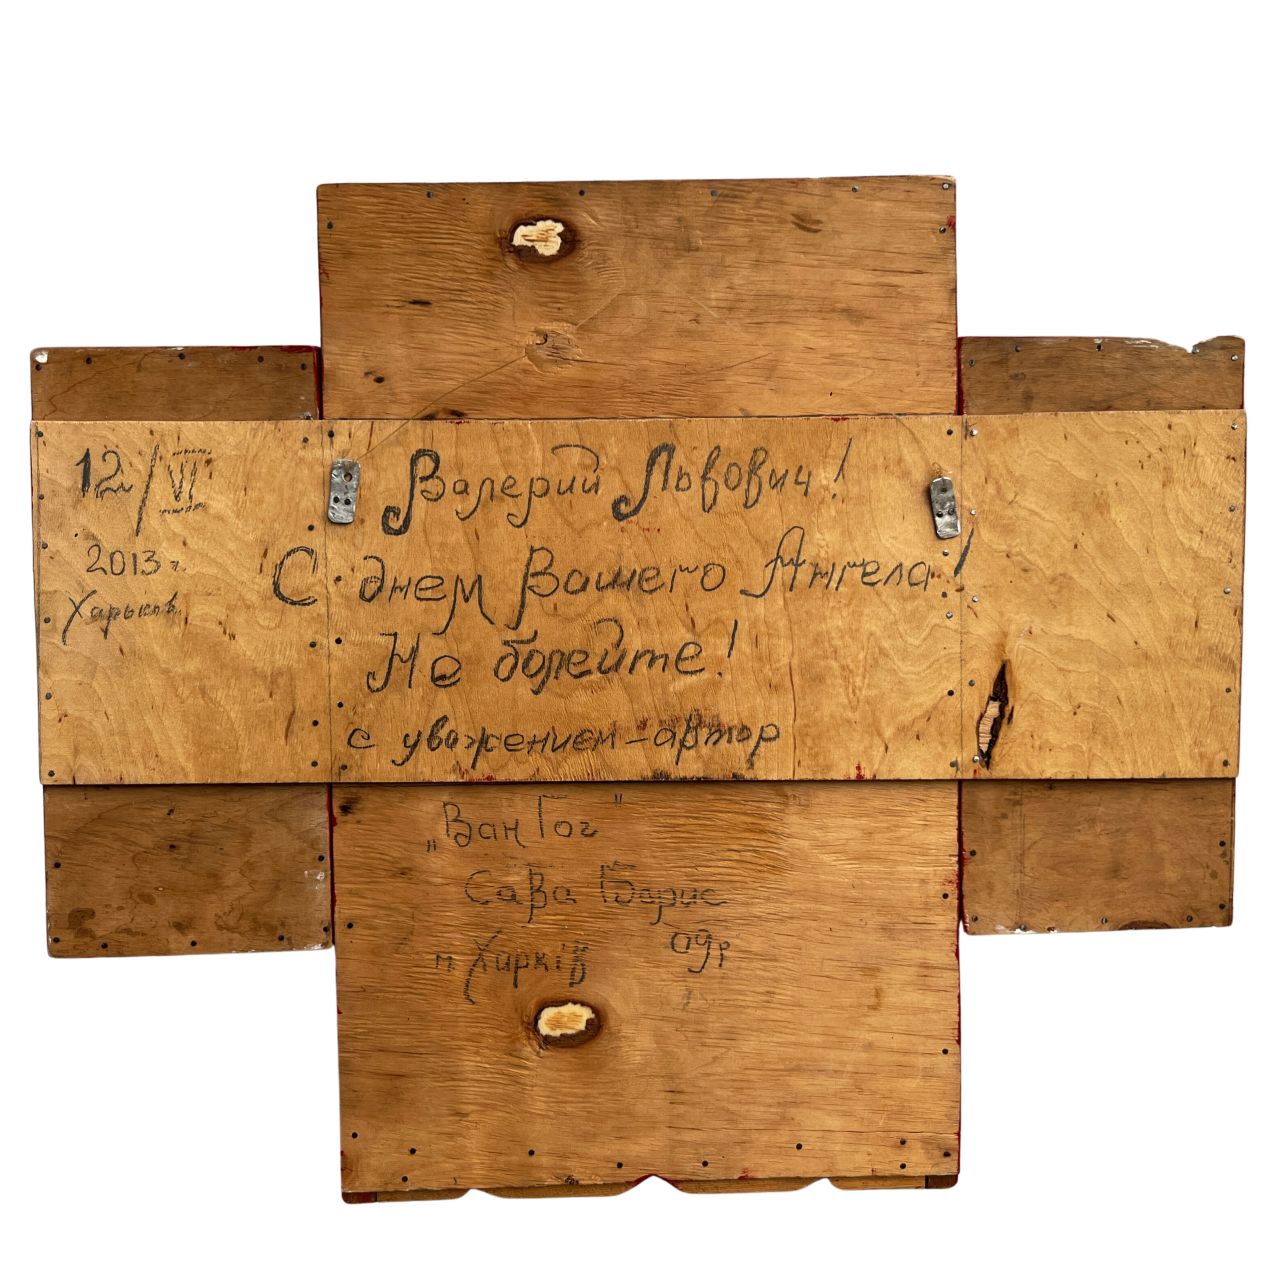 12/VI
2013 г.
Харьков.
Валерий Львович!
С днем Вашего Ангела!
Не болейте!
с уважением - автор
"Ван Гог"
Сава Борис
м Харків